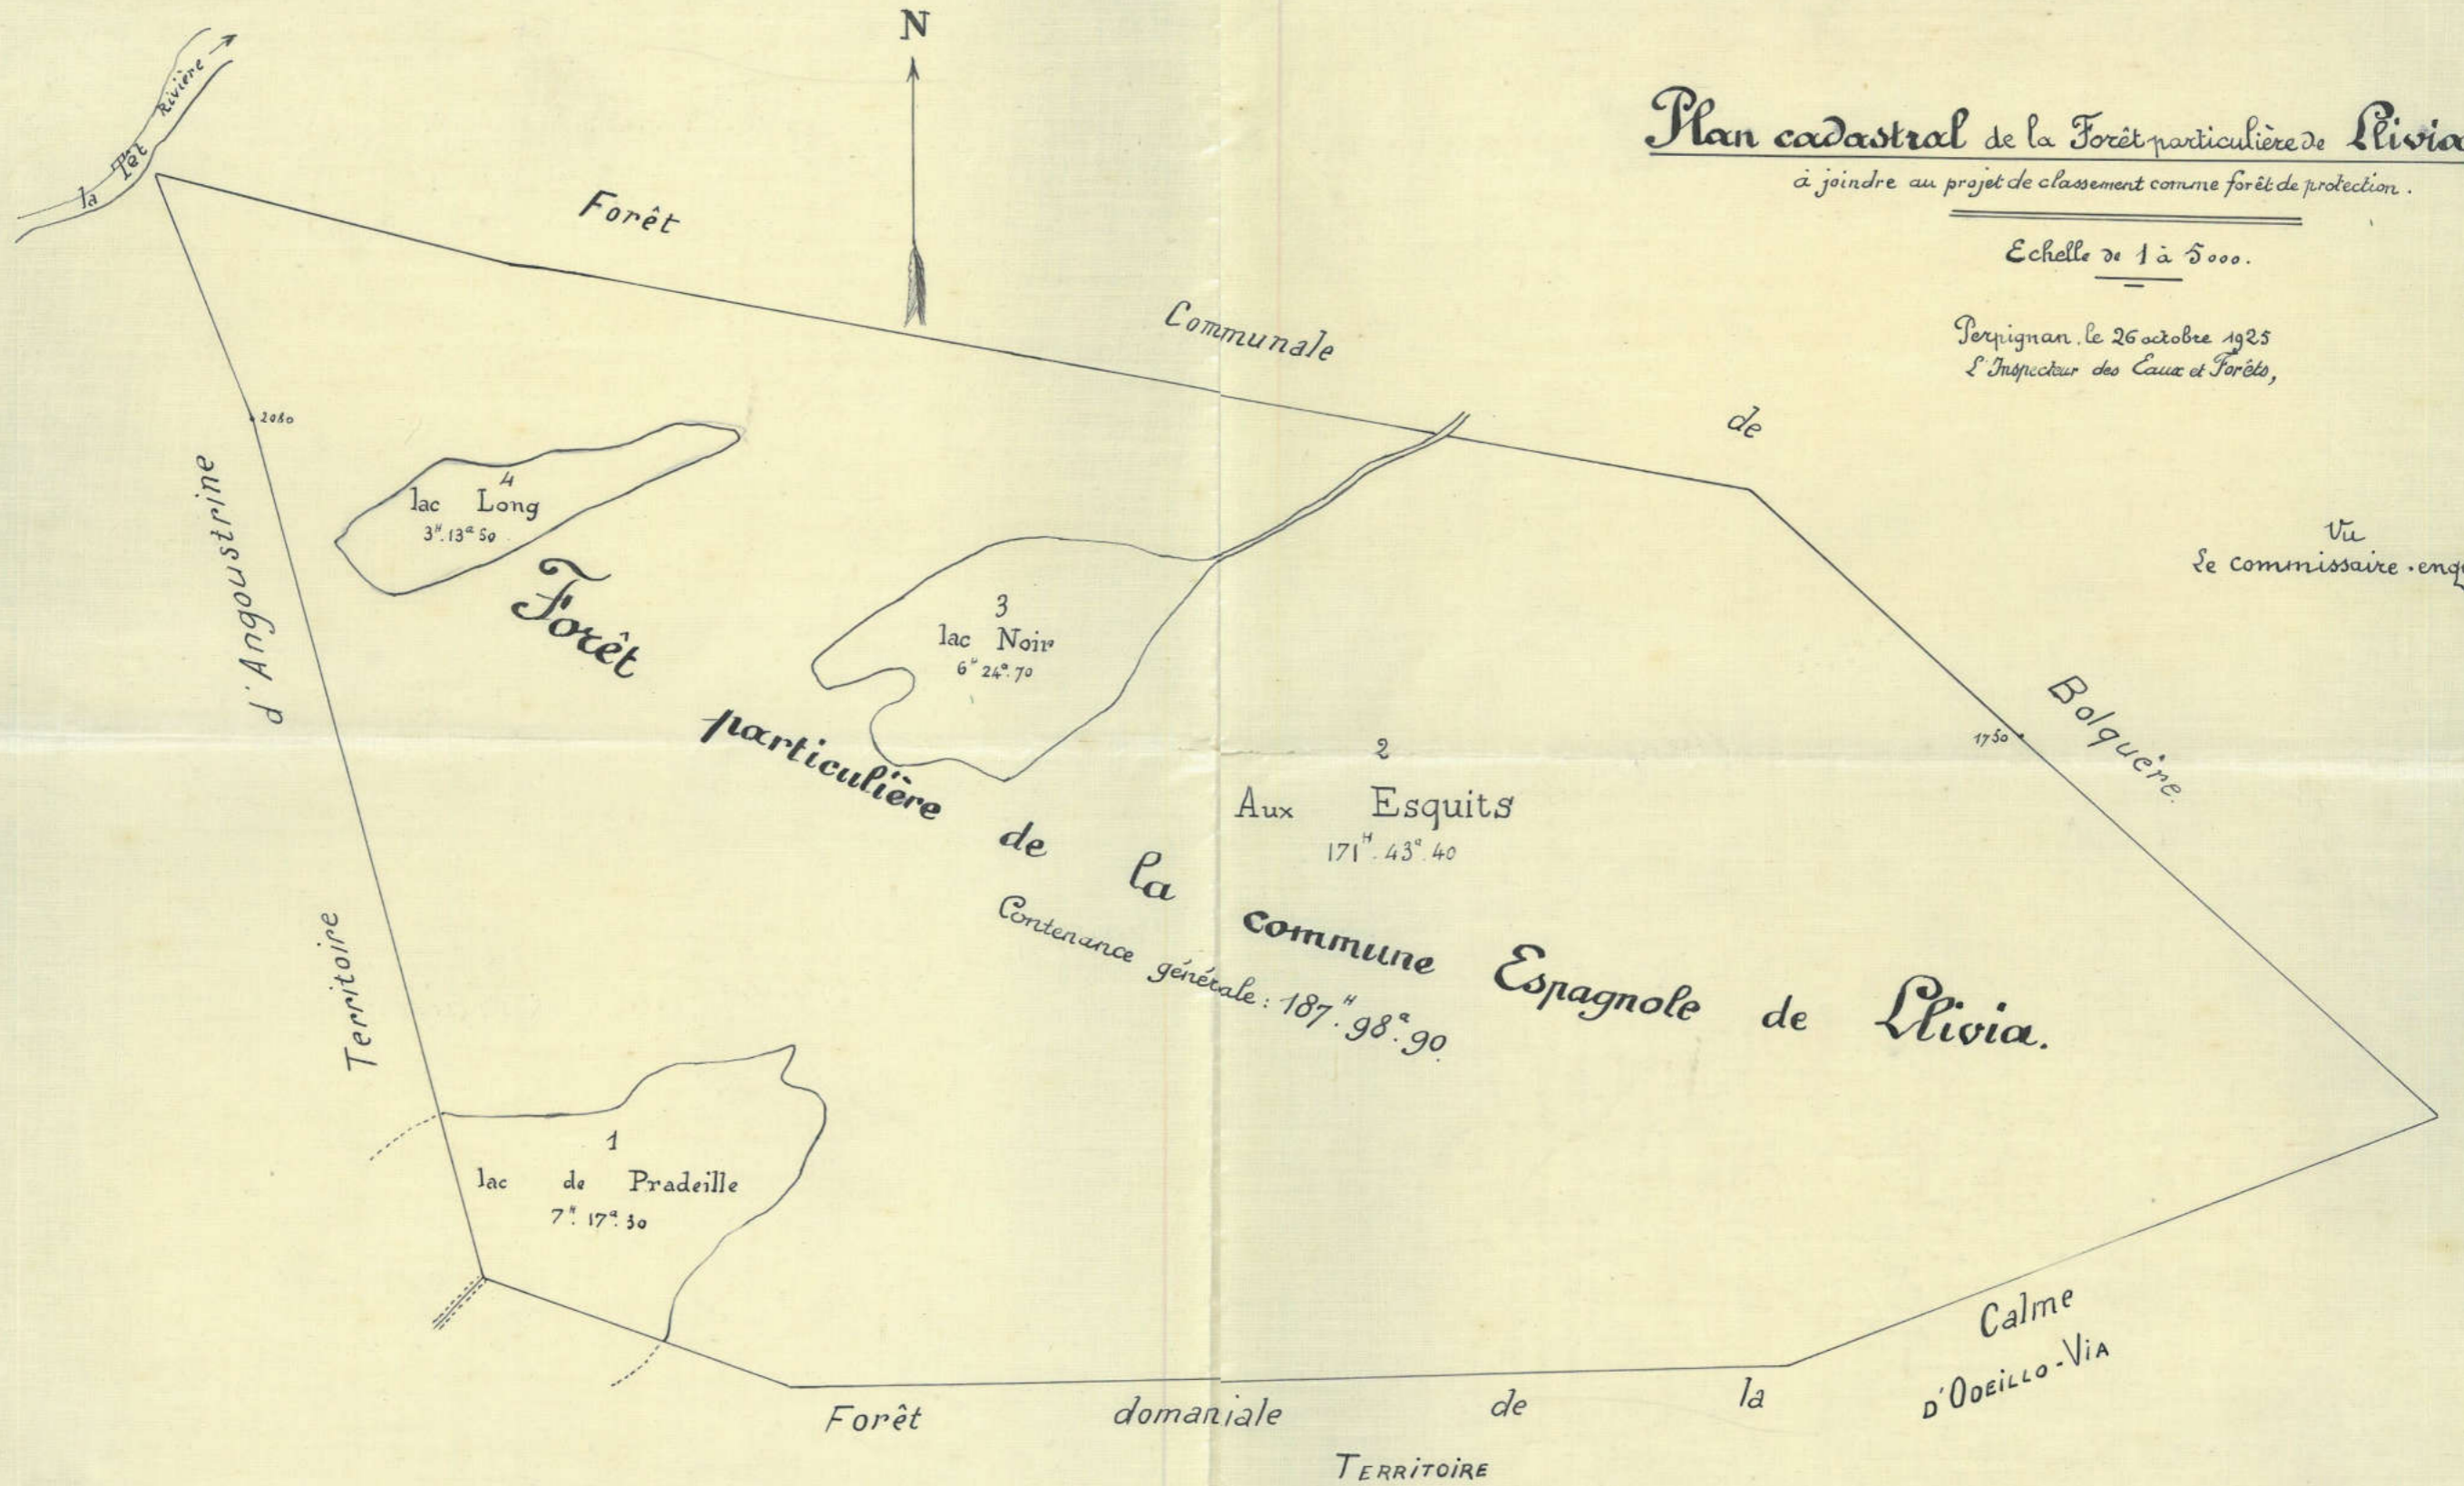 N
Plan cadastral de la Forêt particulière de Llivia
à joindre au projet de classement comme forêt de protection.
Echelle de 1 à 5000.
Perpignan, le 26 octobre 1925
L'Inspecteur des Eaux et Forêts,
Vu
Le commissaire-enq
la Têt Rivière
Forêt Communale de Bolquère.
2080
Territoire d'Angoustrine
4
lac Long
3H.13a 50
3
lac Noir
6H 24a.70
1750
2
Aux Esquits
171H.43a.40
Forêt particulière de la commune Espagnole de Llivia.
Contenance générale : 187H.98a.90.
1
lac de Pradeille
7H.17a.30
Forêt domaniale de la Calme
TERRITOIRE D'ODEILLO-VIA